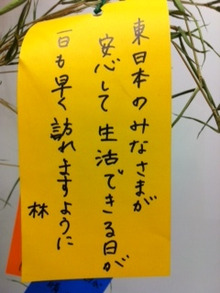 東日本のみなさまが
安心して生活できる日が
一日も早く訪れますように
林